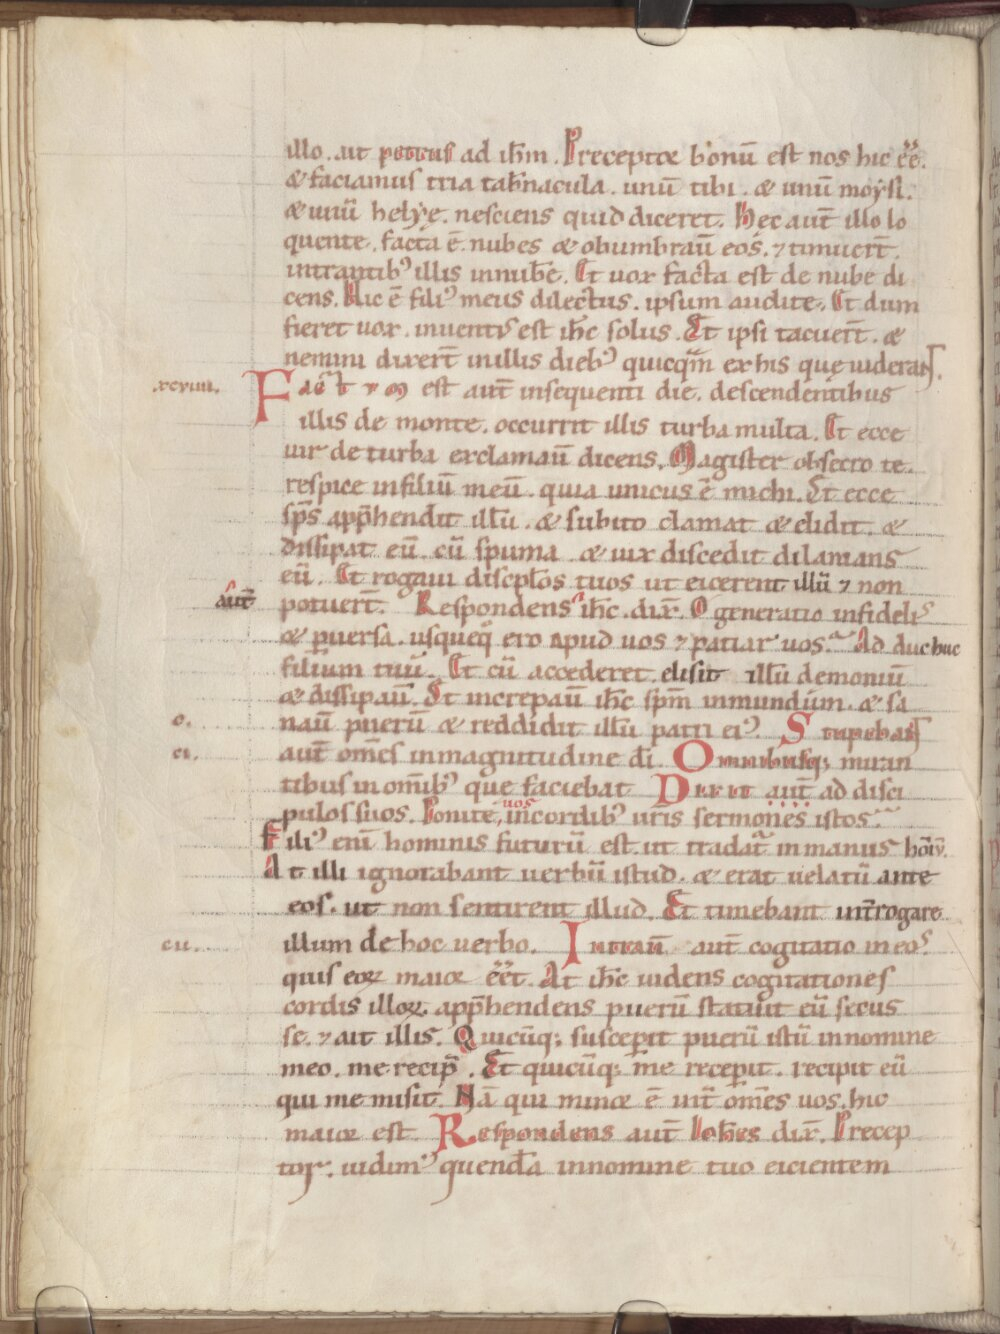 illo. ait petrus ad ih̄m. Preceptor bonū est nos hic ēē.
& faciamus tria tab̄nacula. unū tibi. & unū moẏsi.
& unū helyę. nesciens quid diceret. Hec aut̄ illo lo
quente. facta ē. nubes & obumbrau̅ eos. ⁊ timuer̄t.
intrantib᾽ illis in nub̄e. Et uox facta est de nube di
cens. Hic ē fili᾽ meus dilectus. ipsum audite. Et dum
fieret uox. inuent᾽ est ih̄c solus. Et ipsi tacuer̄t. &
nemini dixer̄t in illis dieb᾽ quicq̄m ex his que uiderant.
.xcviiii. Fact̄ ⁊ m̄ est aut̄ insequenti die. descendentibus
illis de monte. occurrit illis turba multa. Et ecce
uir de turba exclamau̅ dicens. Magister obsecro te.
respice in filiū meū. quia unicus ē michi. Et ecce
sp̄s app̄hendit illū. & subito clamat & elidit. &
dissipat eū. cū spuma & uix discedit dilanians
eū. Et rogaui discip̄los tuos ut eicerent illū ⁊ non
aut̄ potuer̄t. Respondens ih̄c. dix̄. O generatio infideli᾽
& p̄uersa. usqueq̄ ero apud uos ⁊ patiar uos. Adduc huc
filium tuū. Et cū accederet. elisit illū demoniū
& dissipau̅. Et increpau̅ ih̄c sp̄m inmundum. & sa
c. nau̅ puerū & reddidit illū patri ei᾽. Stupebant
ci. aut̄ om̄es in magnitudine d̄i. Omnibusq; miran
tibus in om̄ib᾽ que faciebat Dixit aut̄ ad disci
pulos suos. Ponite uos in cordib᾽ uris sermones istos
Fili᾽ enī hominis futurū est. ut tradat᾽ in manus hōiū.
At illi ignorabant uerbū istud. & erat uelatū ante
eos. ut non sentirent illud. Et timebant int̄rogare
cii. illum de hoc uerbo. Intrau̅ aut̄ cogitatio in eos
quis eoꝝ maior ēēt. At ih̄c uidens cogitationes
cordis illoꝝ. app̄hendens puerū statuit eū secus
se. ⁊ ait illis. Quicūq; susceperit puerū istū in nomine
meo. me recip̄. Et quicūq; me receperit. recipit eū
qui me misit. Nā qui minor ē int̄ om̄es uos. hic
maior est. Respondens aut̄ Ioh̄es dix̄. Precep
tor. uidim᾽ quendā in nomine tuo eicientem